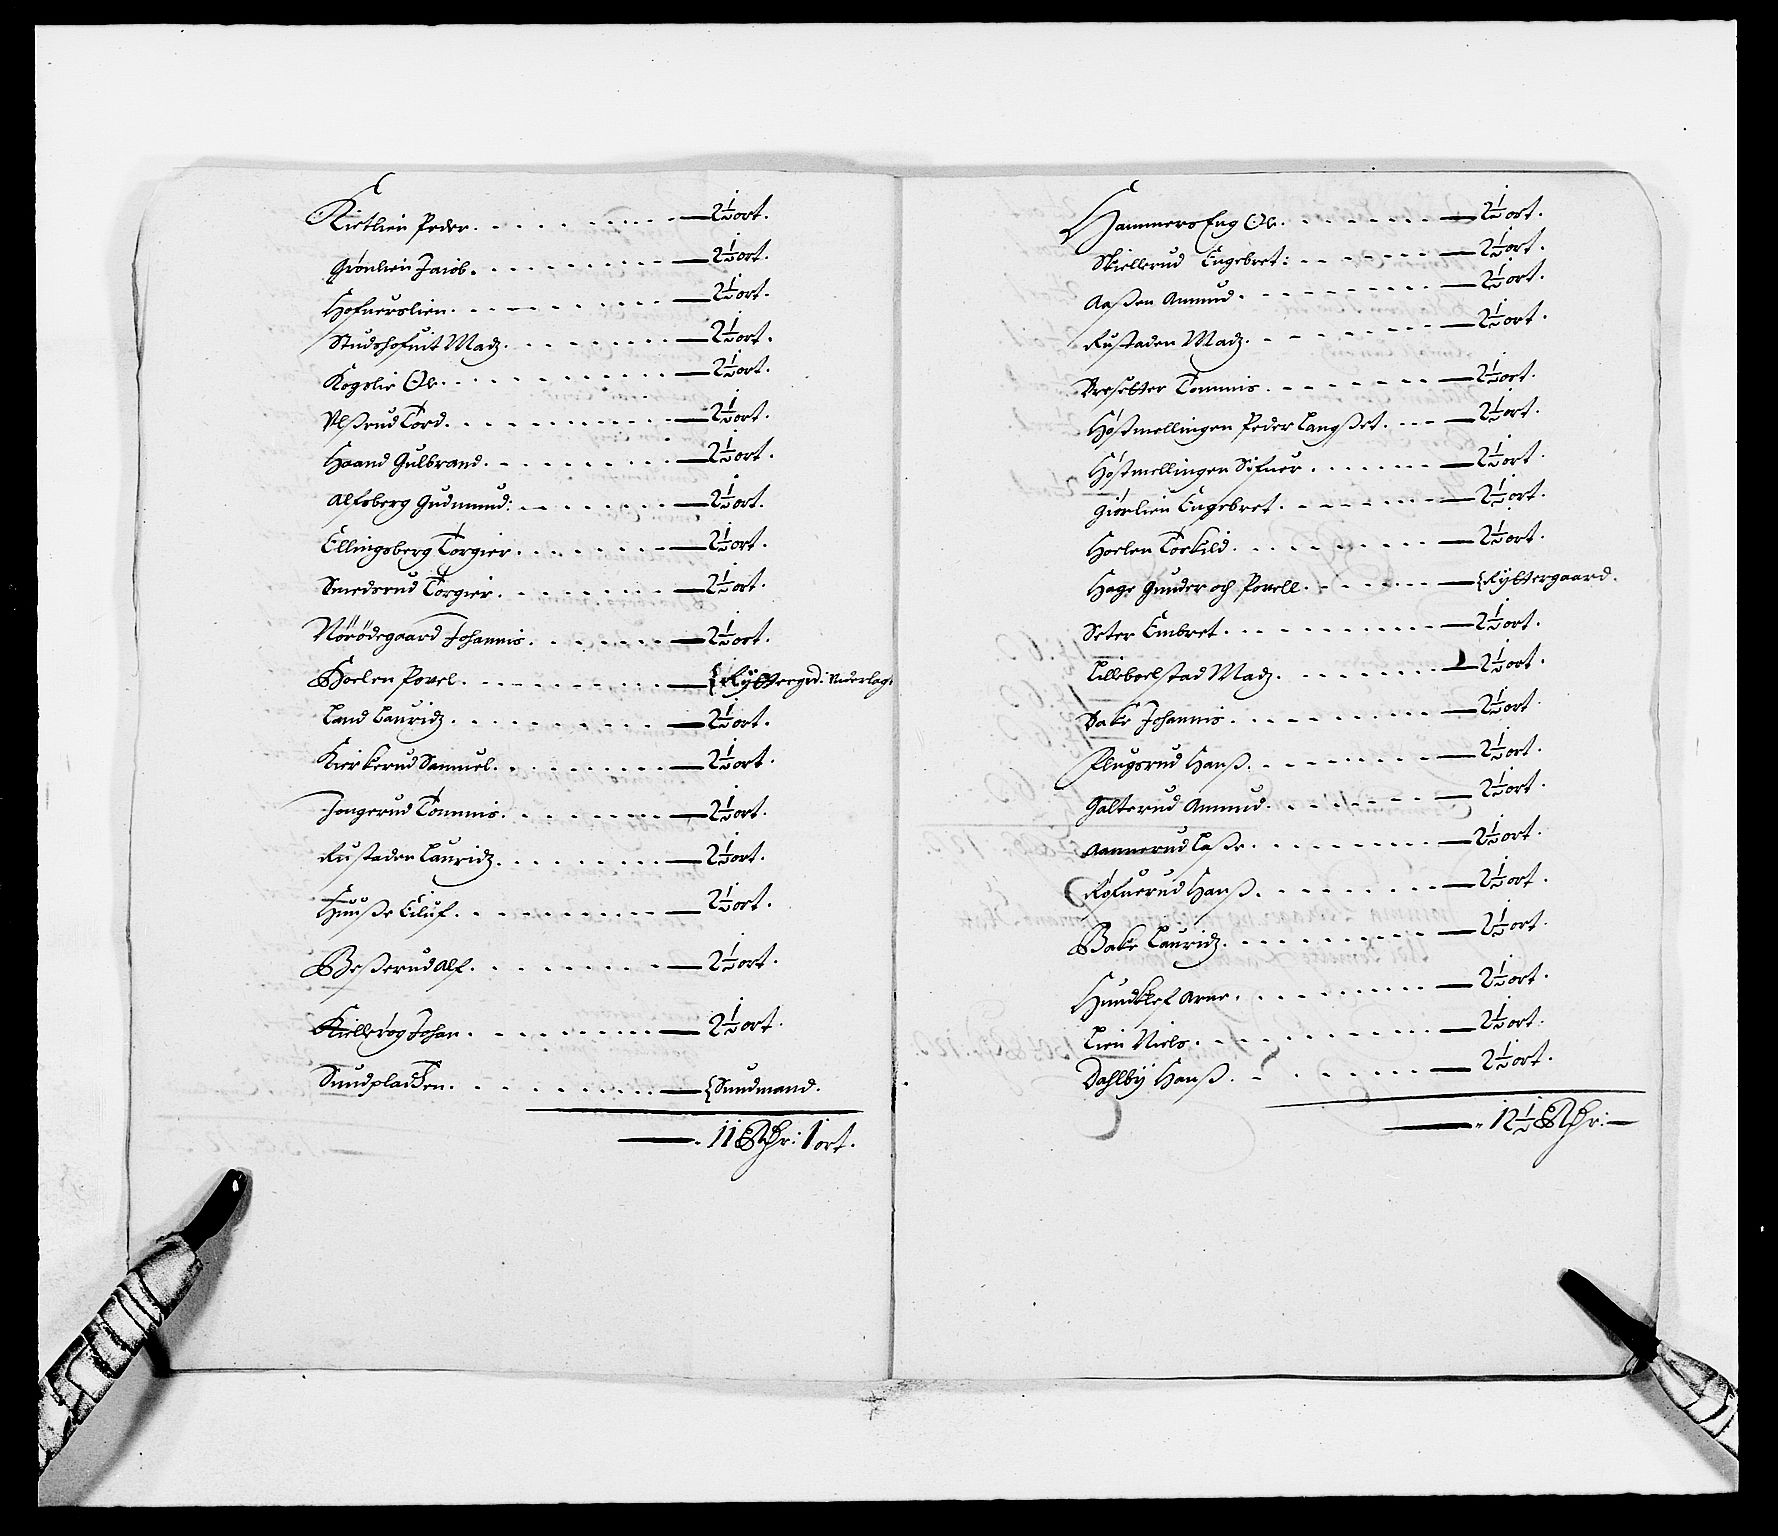 Kietlien Peder. 2½ ort.
Grönlien Jacob. 2½ ort.
Hofuerslien. 2½ ort.
Studshofuit Madz. 2½ ort.
Kogslie Ole. 2½ ort.
Ulßrud Tord. 2½ ort.
Haand Gulbrand. 2½ ort.
Alfsberg Gudmund: 2½ ort.
Ellingsberg Torgier. 2½ ort.
Smedsrud Torgier. 2½ ort.
Nörödegaard Johannis. 2½ ort.
Hoelen Povel. {Rÿttergrd: Underlag.
Land Lauridz. 2½ ort.
Kierkerud Samuel. 2½ ort.
Jongerud Tommis. 2½ ort.
Rustaden Lauridz. 2½ ort.
Huuße Eiluf. 2½ ort.
Beßerud Alf. 2½ ort.
Johan. 2½ ort.
Sundpladtzen. {Sundmand.
11 Rdr: 1 ort.
Hammers Eng Ole. 2½ ort.
Skiellerud Engebret: 2½ ort.
Aaßen Amund. 2½ ort.
Rustaden Madz. 2½ ort.
Bresetter Tommis. 2½ ort.
Höstmellingen Peder Langßet. 2½ ort.
Höstmellingen Sifuer. 2½ ort.
Giörlien Engebret. 2½ ort.
Hoelen Torkild. 2½ ort.
Hage Gunder och Povell. {Rÿttergaard.
Seter Embret. 2½ ort.
Lillebelstad Madz. 2½ ort.
Bake Johannis. 2½ ort.
Plugsrud Hanß. 2½ ort.
Galterud Amund. 2½ ort.
Aannerud Laße. 2½ ort.
Röfuerud Hanß. 2½ ort.
Bake Lauridz. 2½ ort.
Arne. 2½ ort.
Lien Niels. 2½ ort.
Dahlbÿ Hanß. 2½ ort.
12½ Rdr: